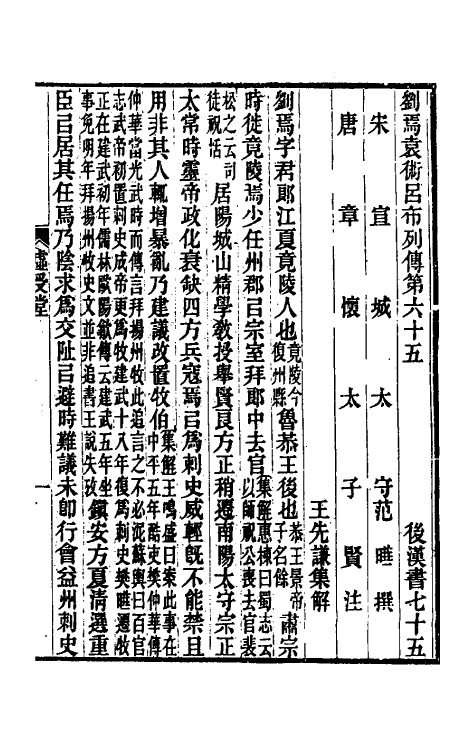 劉焉袁術呂布列傳第六十五　後漢書七十五
宋宣城太守范曄撰
唐章懷太子賢注
王先謙集解
劉焉字君郎江夏竟陵人也竟陵今復州縣魯恭王後也恭王景帝子名餘肅宗
時徙竟陵焉少任州郡㠯宗室拜郎中去官集解惠棟曰蜀志云以師祝公喪去官裴
松之云司徒祝恬居陽城山精學教授舉賢良方正稍遷南陽太守宗正
太常時靈帝政化衰缺四方兵寇焉㠯爲刺史威輕既不能禁且
用非其人輒增暴亂乃建議改置牧伯集解王鳴盛曰案此事在中平五年酷吏樊仲華傳
仲華當光武時而傳言拜揚州牧此追言之不必泥蘇輿曰百官志武帝初置刺史成帝更爲牧建武十八年復爲刺史樊曄遷牧
正在建武初年儒林歐陽歙傳云建武五年坐事免明年拜揚州牧史文並非追書王說失攷鎮安方夏清選重
臣㠯居其任焉乃陰求爲交阯㠯避時難議未即行會益州刺史
一
虛受堂